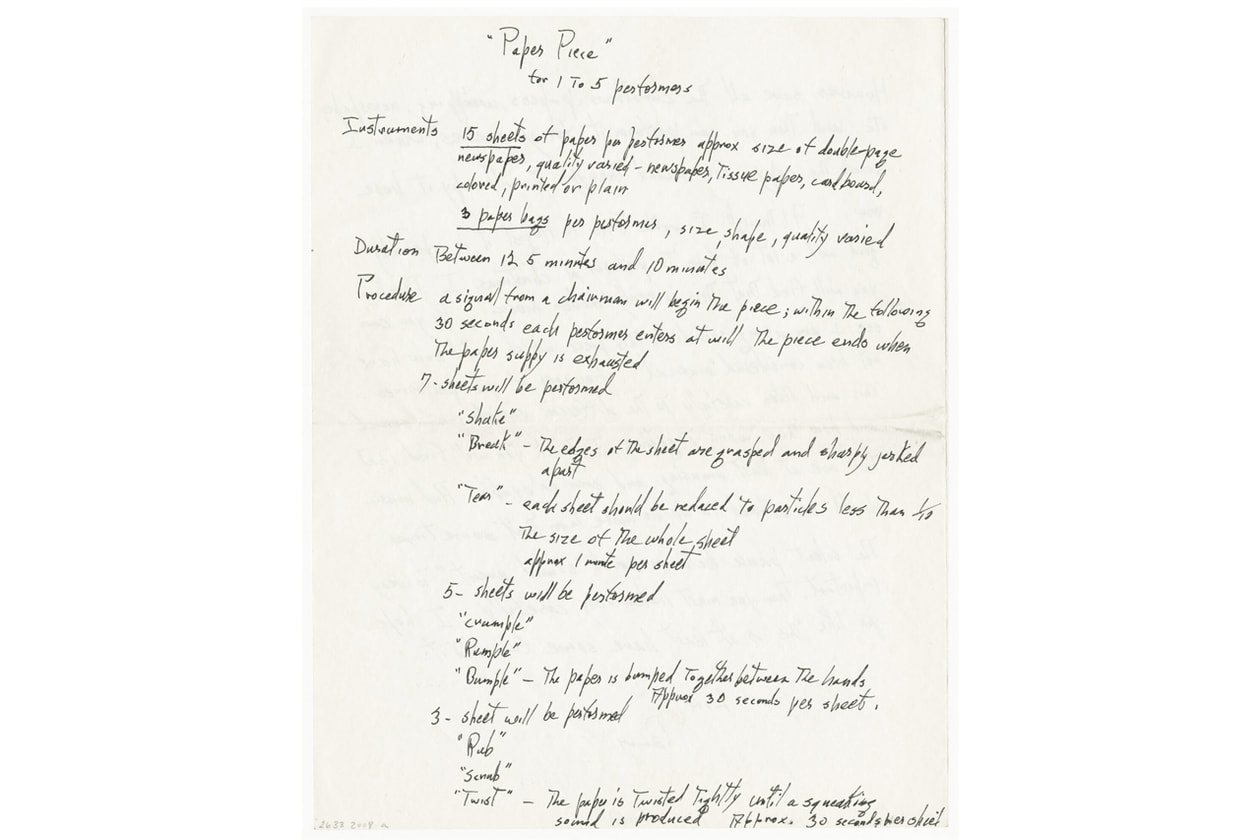 "Paper Piece"
for 1 To 5 performers
Instruments 15 sheets of paper per performer approx size of double page
newspaper, quality varied – newspaper, Tissue paper, cardboard,
colored, printed or plain
3 paper bags per performer, size, shape, quality varied
Duration Between 12 5 minutes and 10 minutes
Procedure a signal from a chairman will begin The piece; within The following
30 seconds each performer enters at will The piece ends when
The paper supply is exhausted
7 - sheets will be performed
"shake"
"Break" – The edges of The sheet are grasped and sharply jerked
apart
"Tear" – each sheet should be reduced To particles less Than 1/10
The size of The whole sheet
approx 1 minute per sheet
5 – sheets will be performed
"crumple"
"Rumple"
"Bumple" – The paper is bumped Together between The hands
Approx 30 seconds per sheet.
3 - sheet will be performed
"Rub"
"Scrub"
"Twist" – The paper is Twisted Tightly until a squeaking
sound is produced Approx. 30 seconds per sheet
2630.2008 a